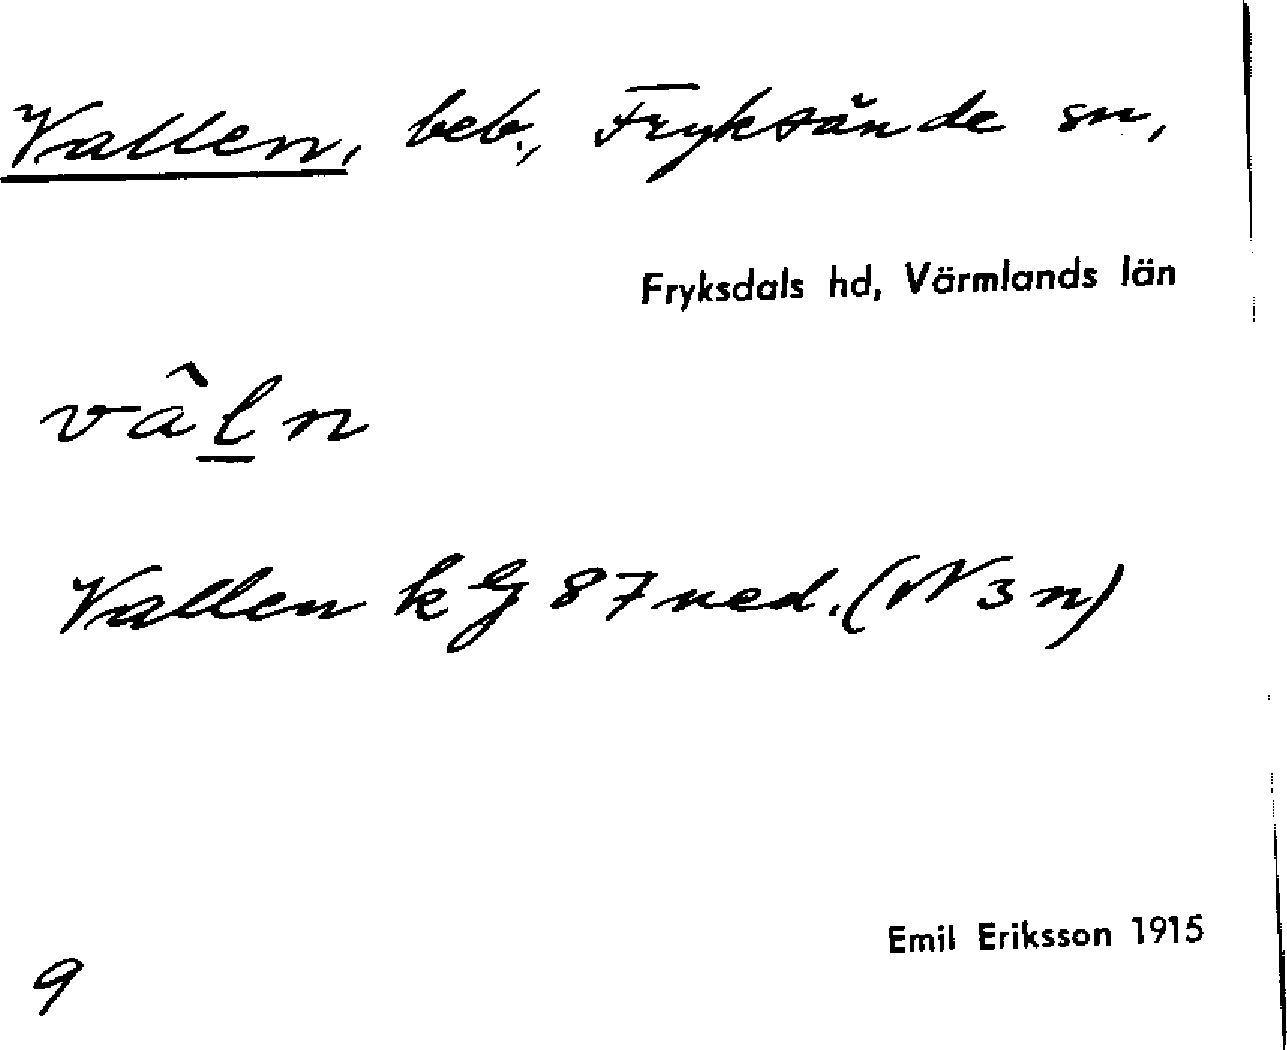 Vallen, beb., Fryksände sn,
Fryksdals hd, Värmlands län
vâl̲n
Vallen k EG 87 ned. (N 3 n)
Emil Eriksson 1915
9